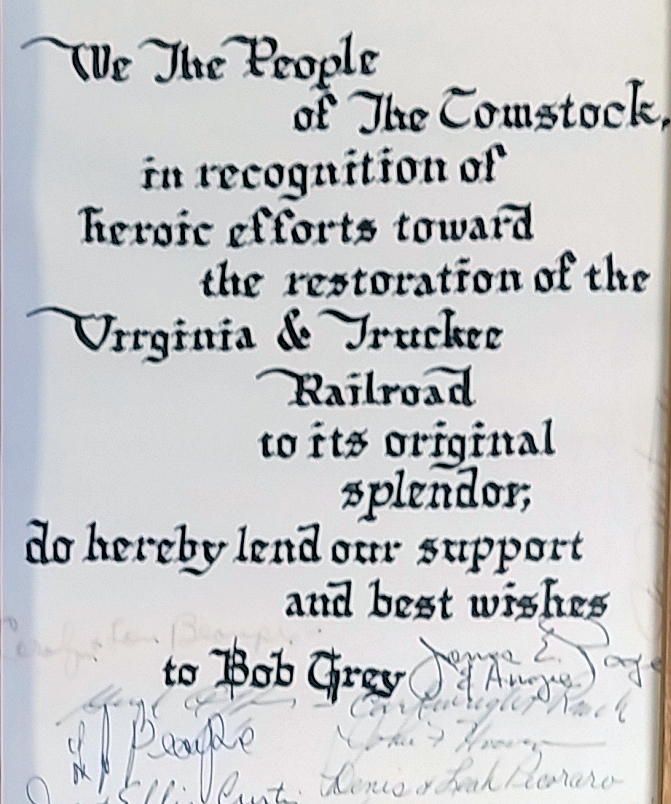 We The People
of The Comstock,
in recognition of
heroic efforts toward
the restoration of the
Virginia & Truckee
Railroad
to its original
splendor,
do hereby lend our support
and best wishes
to Bob Grey
& Angie
Cartwright Ranch
John F Hoover
Denis & Leah Pecoraro